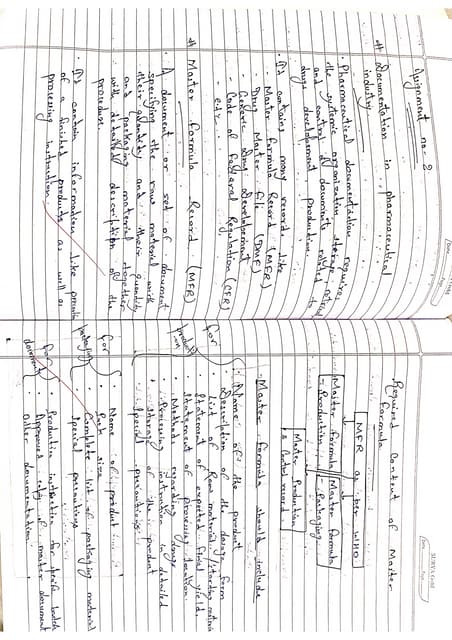 Assignment no:- 2
# Documentation in pharmaceutical
industry
• Pharmaceutical documentation requires
the systemic organization storage,
and control of documents related to
drugs development production.
• It contains many record. Like
• Master Formula Record (MFR)
• Drug Master File (DMF)
• Generic Drug Development
• Code of Federal Regulation (CFR)
etc.
# Master Formula Record :- (MFR)
• A document or set of document
specifying the raw material with
their quantity and their quantity
and packaging material together
with detailed description of the
procedure.
• It contain information like
of a finished products as will as
processing instruction
SURYA Gold
Required content of Master
Formula
MFR as per WHO
Master formula
- Production
Master formula
- Packaging
Master Production
& Control record
Master formula should include
for
product
• Name of the product
• Description of the dosage form
• List of Raw material / starting
• Statement of expected final yield.
• Statement of processing location.
• Method, regarding
• Processing instruction in detailed
• Storage of the product
• Special precautions.
for
packaging
• Name of product
• Pack size
• Complete list of packaging material
• Special precautions
for
document
• Production instruction for batch
• Approved copy of master document
• Other documentation.